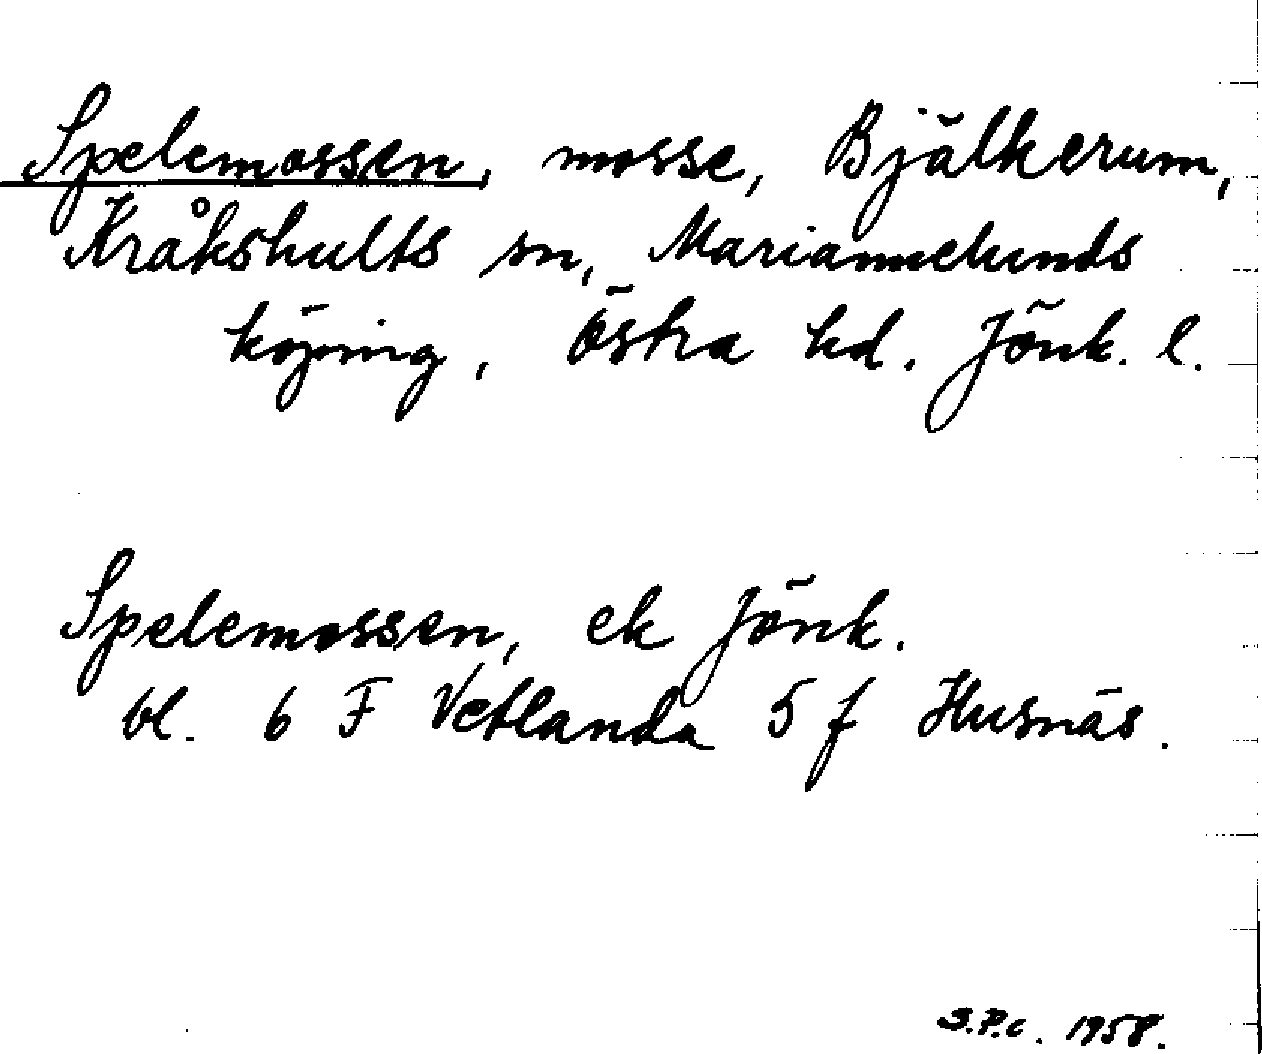 Spelemossen, mosse, Bjälkerum,
Kråkshults sn, Mariannelunds
köping, Östra hd. Jönk. l.
Spelemossen, ek Jönk.
bl. 6 F Vetlanda 5 f Husnäs.
S.P.c. 1958.